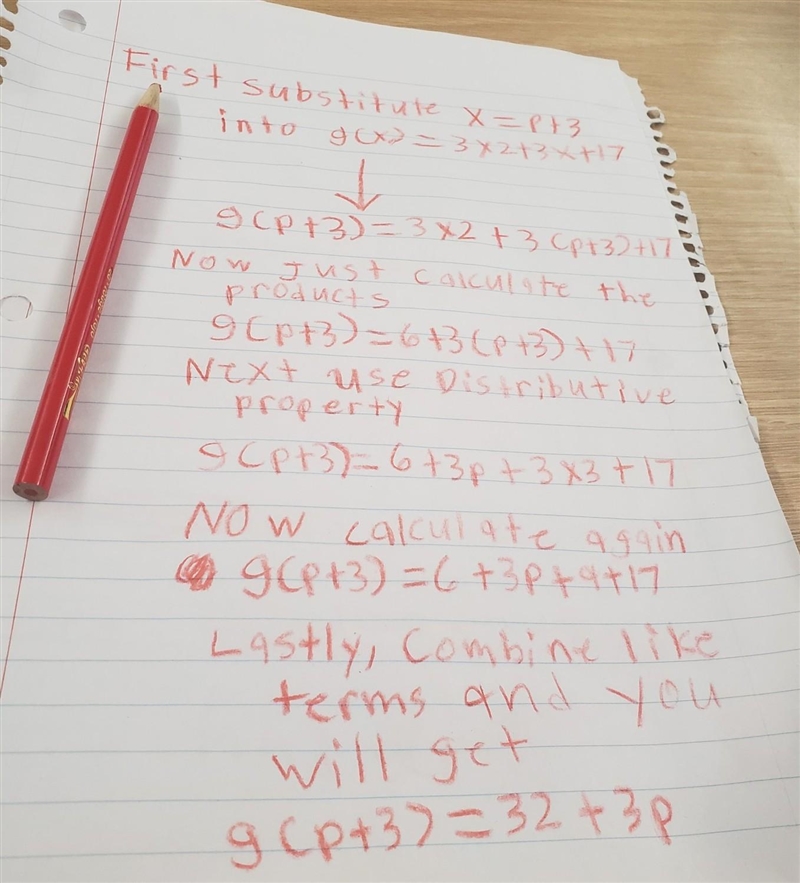 First substitute x=p+3
into g(x)=3x2+3x+17
↓
g(p+3)=3x2+3(p+3)+17
Now Just calculate the
products
g(p+3)=6+3(p+3)+17
Next use Distributive
property
g(p+3)=6+3p+3x3+17
NOW calculate again
g(p+3)=6+3p+9+17
Lastly, combine like
terms and you
will get
g(p+3)=32+3p